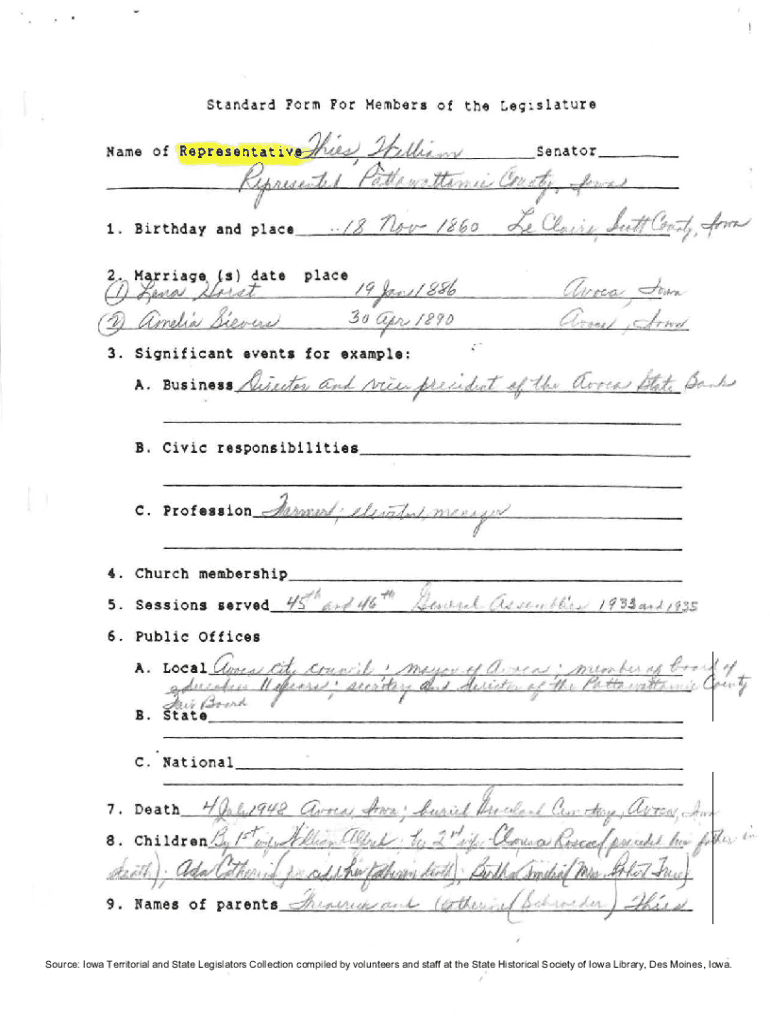 Standard Form For Members of the Legislature
Name of Representative Thies, William Senator
Represented Pottawattamie County, Iowa
1. Birthday and place 18 Nov 1860 Le Claire, Scott County, Iowa
2. Marriage (s) date place
(1) Lena Horst 19 Jan 1886 Avoca, Iowa
(2) Amelia Sievers 30 Apr 1890 Avoca, Iowa
3. Significant events for example:
A. Business Director and vice president of the Avoca State Bank
B. Civic responsibilities
C. Profession Farmer; elevator manager
4. Church membership
5. Sessions served 45th and 46th General Assemblies 1933 and 1935
6. Public Offices
A. Local Avoca city council; mayor of Avoca; member of board of
education 11 years; secretary and director of the Pottawattamie County
Fair Board
B. State
C. National
7. Death 4 July 1948 Avoca, Iowa; buried Graceland Cemetery, Avoca, Iowa
8. Children By 1st wife William Alfred; by 2nd wife Clarence Roscoe (preceded his father in
death); Ada Catherine (preceded her father in death); Bertha Amelia (Mrs.
9. Names of parents Frederick and Catherine (Schroeder) Thies
Source: Iowa Territorial and State Legislators Collection compiled by volunteers and staff at the State Historical Society of Iowa Library, Des Moines, Iowa.